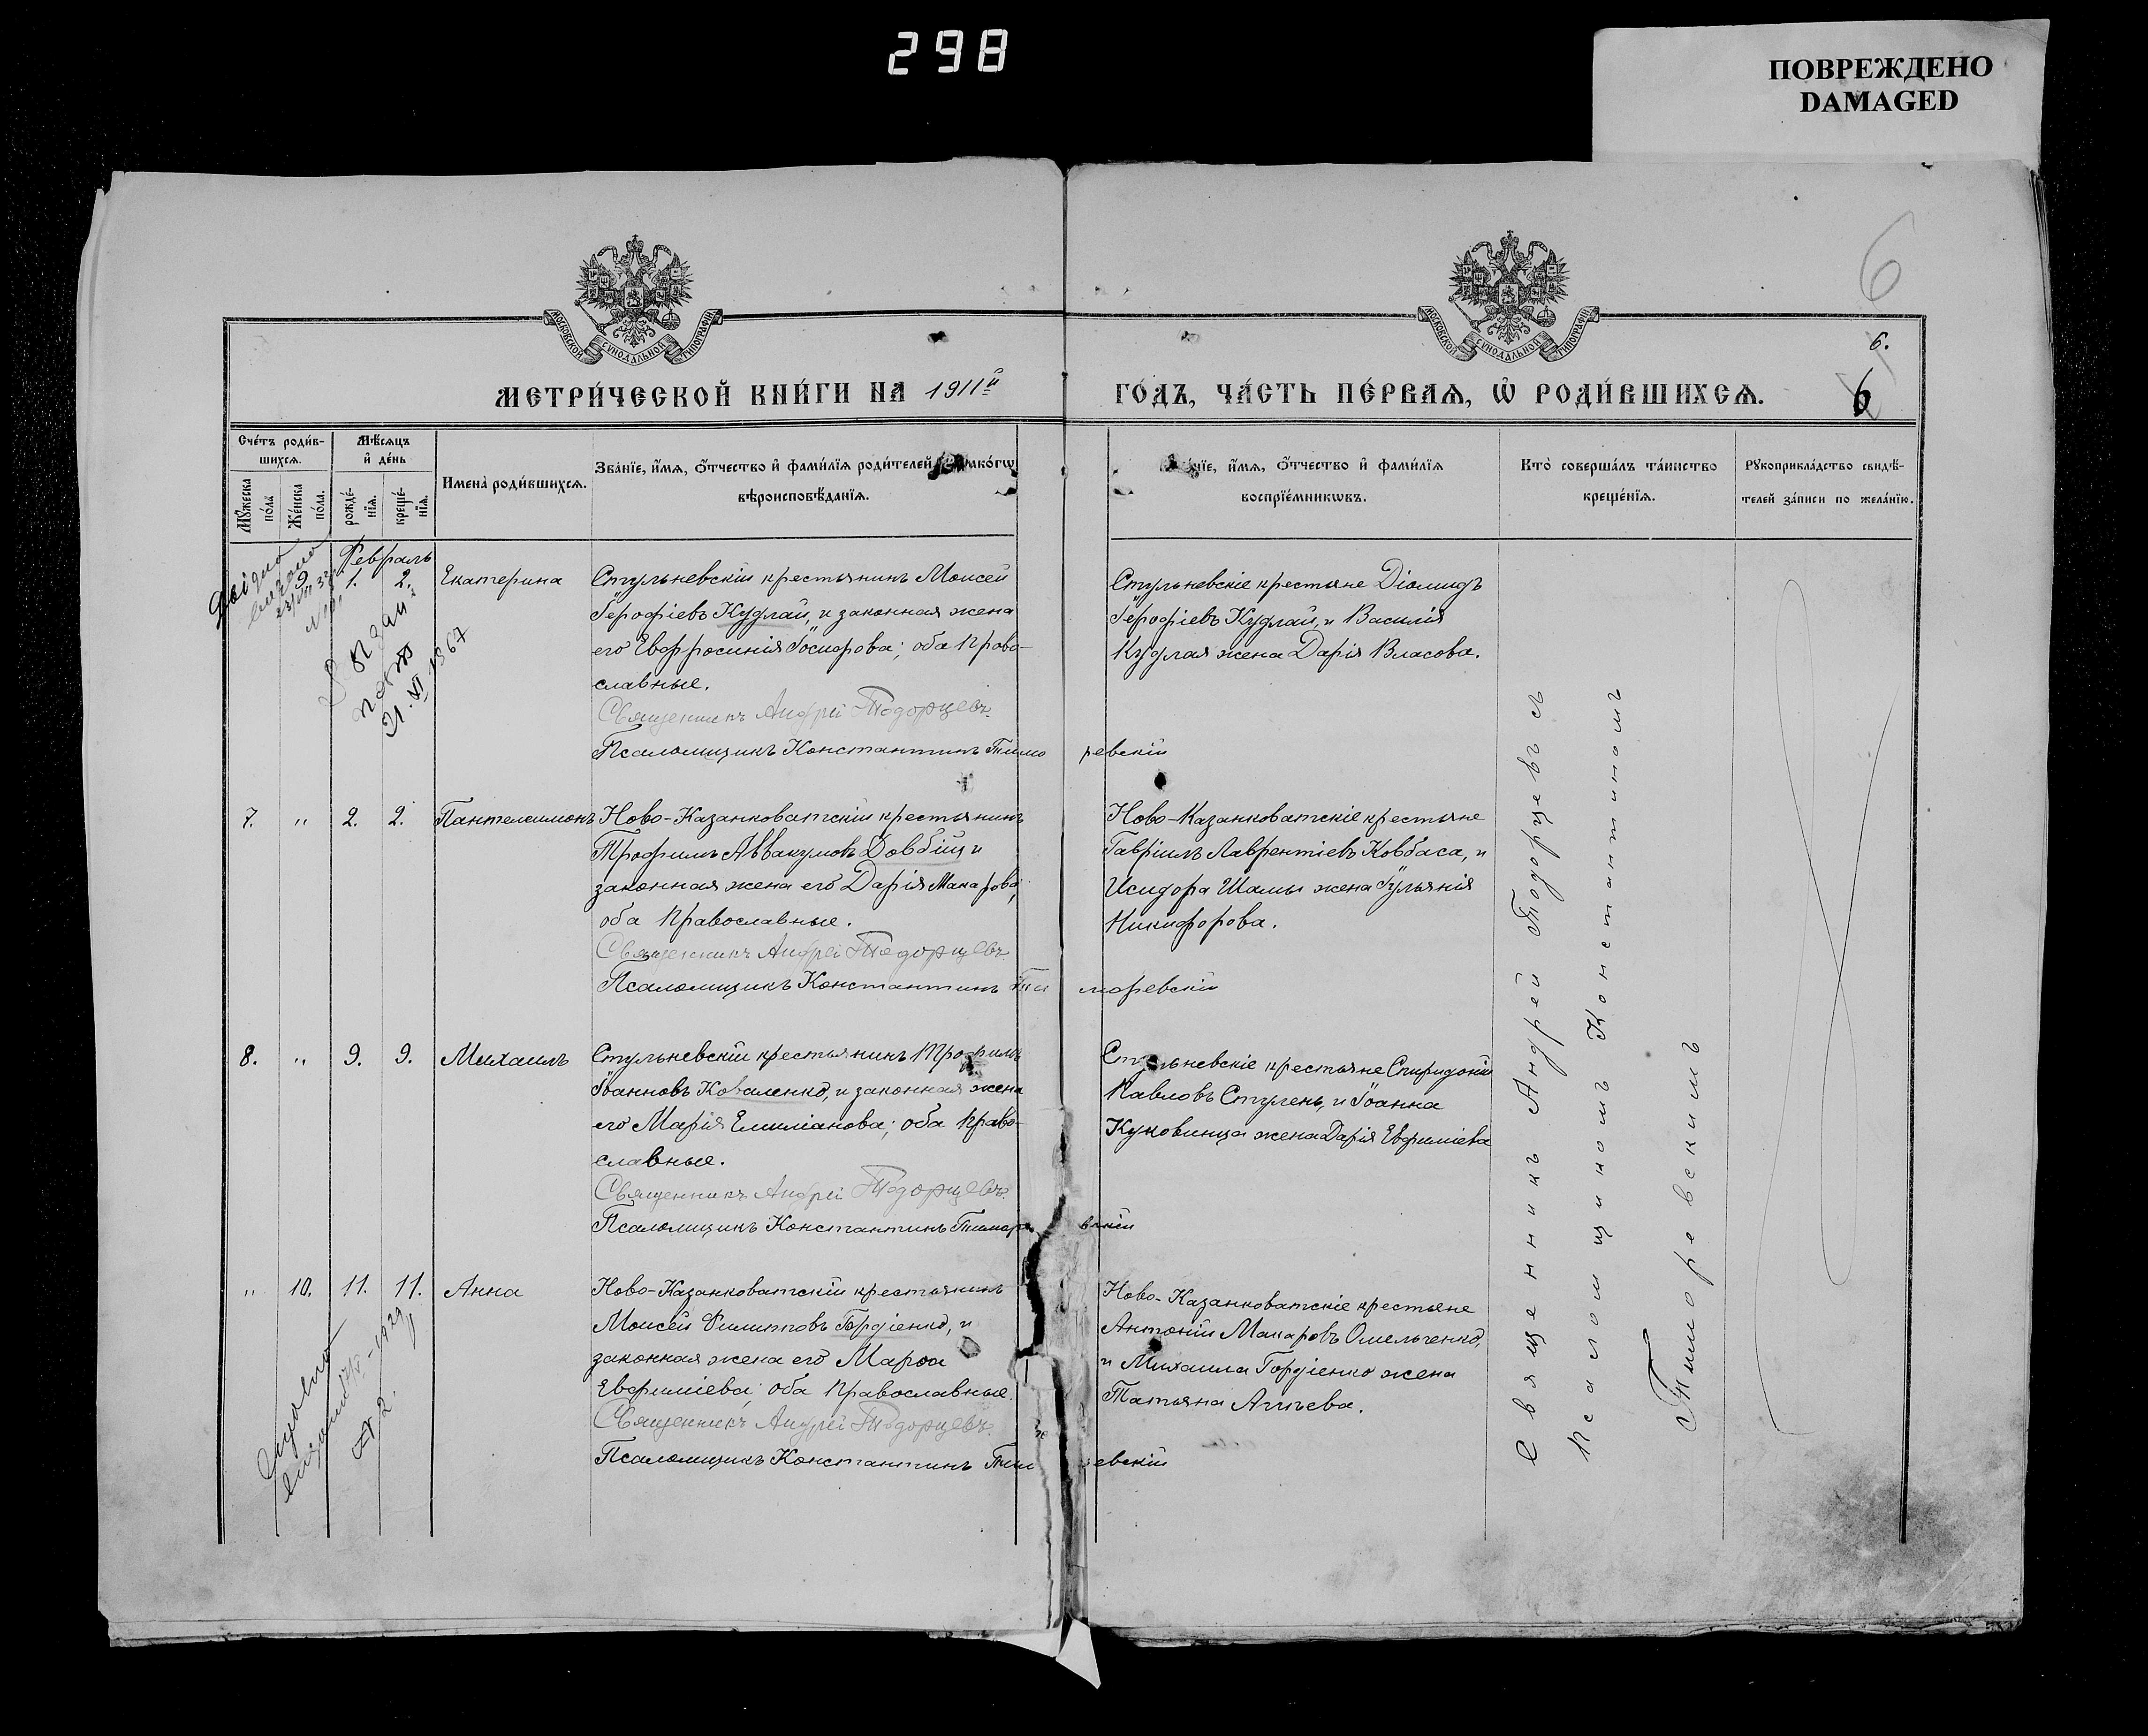 298
ПОВРЕЖДЕНО
DAMAGED
6
6.
6
МОСКОВСКОЙ СУНОДАЛЬНОЙ ТИПОГРАФІИ
МОСКОВСКОЙ СУНОДАЛЬНОЙ ТИПОГРАФІИ
МЕТРИ́ЧЕСКОЙ КНИ́ГИ НА 1911й
ГО́ДЪ, ЧА́СТЬ ПЕ́РВАѦ, Ѽ РОДИ́ВШИХСѦ.
Сче́тъ роди́в-
шихсѧ.
Мѣ́сѧцъ
и҆ де́нь
Мꙋ́жеска
по́ла
Же́нска
по́ла.
рожде́-
нїѧ.
креще́-
нїѧ.
Имена̀ роди́вшихсѧ.
Зва́нїе, и҆́мѧ, ѻ҆́тчество и҆ фами́лїѧ роди́телей
вѣроисповѣ́данїѧ.
и҆́мѧ, ѻ҆́тчество и҆ фами́лїѧ
воспрїе́мникѡвъ.
Кто̀ соверша́лъ та́инство
креще́нїѧ.
Рꙋкоприкла́дство свидѣ́-
телей за́писи по жела́нїю.
Февраль
9. 1. 2. Екатерина
Стульневскій крестьянинъ Моисей
Іерофіевъ Кудлай, и законная жена
его Евфросинія Іосифова; оба право-
славные.
Священникъ Андрей Тодорцевъ
Псаломщикъ Константинъ Тимо ревскій
Стульневскіе крестьяне Діомидъ
Іерофіевъ Кудлай, и Василія
Кудлая жена Дарія Власова.
21.VI 1967
7. " 2. 2. Пантелеимонъ
Ново-Казанковатскій крестьянинъ
Трофимъ Аввакумовъ Довбій, и
законная жена его Дарія Макарова;
оба православные.
Священникъ Андрей Тодорцевъ
Псаломщикъ Константинъ Ти моревскій
Ново-Казанковатскіе крестьяне
Гавріилъ Лаврентіевъ Ковбаса, и
Исидора Шамы жена Іуліанія
Никифорова.
8. " 9. 9. Михаилъ
Стульневскій крестьянинъ Трофимъ
Іоанновъ Коваленко, и законная жена
его Марія Емиліанова; оба право-
славные.
Священникъ Андрей Тодорцевъ
Псаломщикъ Константинъ Тиморе вскій
Стульневскіе крестьяне Спиридонъ
Павловъ Ступень, и Іоанна
Куковинца жена Дарія Евфиміева
" 10. 11. 11. Анна
Ново-Казанковатскій крестьянинъ
Моисей Филипповъ Гордіенко, и
законная жена его Марѳа
Евфиміева; оба православные.
Священникъ Андрей Тодорцевъ
Псаломщикъ Константинъ Тимо ревскій
Ново-Казанковатскіе крестьяне
Антоній Макаровъ Омельченко,
и Михаила Гордіенко жена
Татьяна
Священникъ Андрей Тодорцевъ съ
Псаломщикомъ Константиномъ
Тиморевскимъ